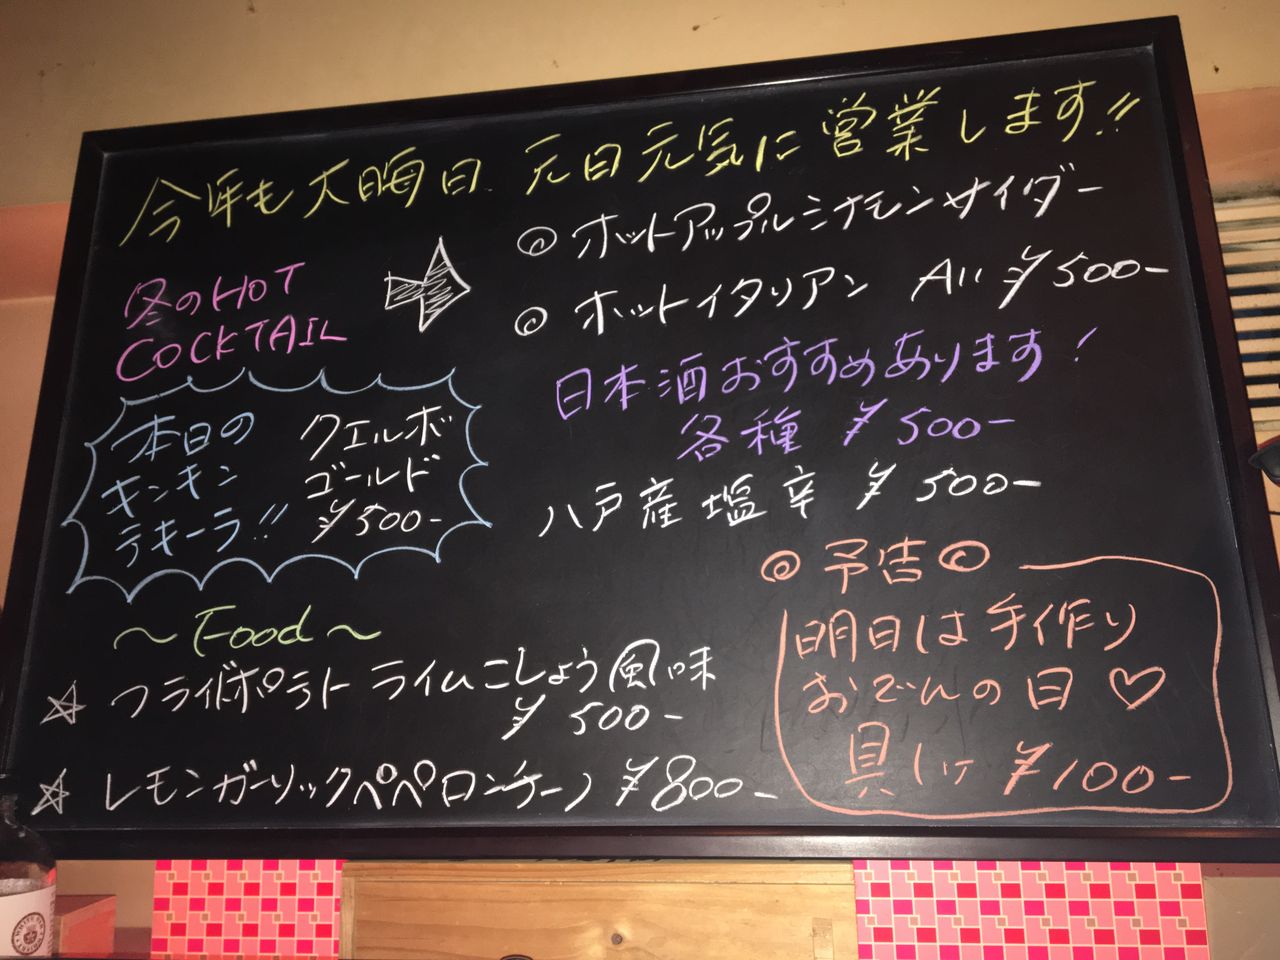 今年も大晦日 元日元気に営業します!!
冬のHOT
COCKTAIL
◎ ホットアップルシナモンサイダー
◎ ホットイタリアン All ¥500-
本日の
キンキン
テキーラ!!
クエルボ
ゴールド
¥500-
日本酒おすすめあります!
各種 ¥500-
八戸産塩辛 ¥500-
~Food~
☆ フライドポテト ライムこしょう風味
¥500-
☆ レモンガーリックペペロンチーノ ¥800-
◎ 予告 ◎
明日は手作り
おでんの日♡
¥100-